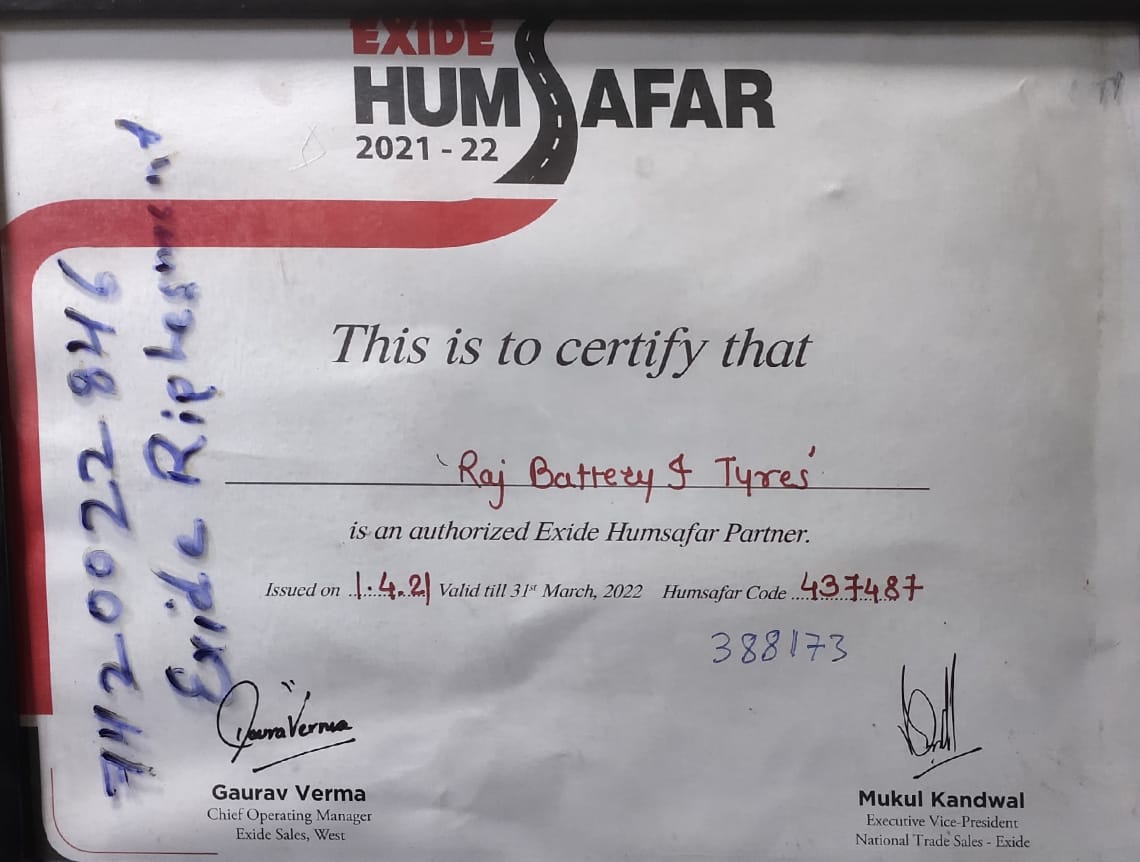 EXIDE
HUMSAFAR
2021 - 22
This is to certify that
'Raj Battery & Tyres'
is an authorized Exide Humsafar Partner.
Issued on 1.4.21 Valid till 31st March, 2022 Humsafar Code 437487
388173
Gaurav Verma
Gaurav Verma
Chief Operating Manager
Exide Sales, West
Mukul Kandwal
Executive Vice-President
National Trade Sales - Exide
7442 0022 846
Exide Riplesment